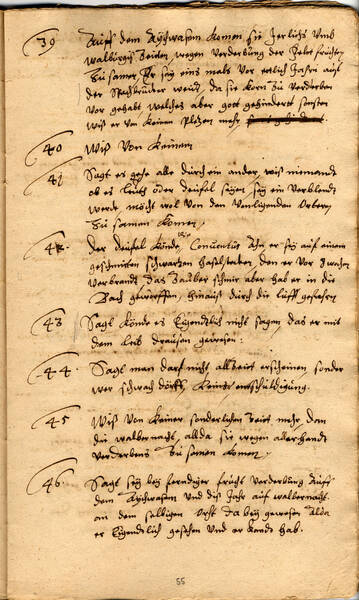 39 Auff dem Aychwasen Komen sie Jerlichs Umb
walburgis Zeiden, wegen verderbung der feldt früchten
Zu samen, Er sey eins mals vor etlich Jahrn auf
der weist, da sie Korn Zu verderben
vor gehabt welches aber gott gehindert sonsten
wiß er von Keinen Pläzen mehr
40 Wiß von Keinem
41 Sagt es gehe alle durch ein ander, wiß niemandt
ob es leuth oder deufel seyen, sey ein verblendt
werck möcht wol von den Umligenden Ortern
Zu samen Komen,
42 Der deufel Könde, Er sey auf einem
geschmirten schwarzen haffel, den er vor 3 wochen
verbrandt, das Zauber schmir aber hab er in die
Bach geworffen, hinauß durch die lufft gefahrn
43 Sagt Könde es Eigendtlich nicht sagen, das er mit
dem leib drausen gewesen
44 Sagt man darf nicht alle Zeit erscheinen sonder
wer schwach dörff, Keine entschuldigung.
45 Wiß von Keiner sonderlichen Zeit mehr, dem
die walbernacht, allda sie wegen allerhandt
verderbens Zu samen Komen,
46 Sagt sey bey ferndiger frücht verderbung Auff
dem Aychwasen und diß Jahr auf walbernacht
an dem selbigen Orth da bey gewesen Alda
er Eigendtlich gesehen und er Kandt hab.
55